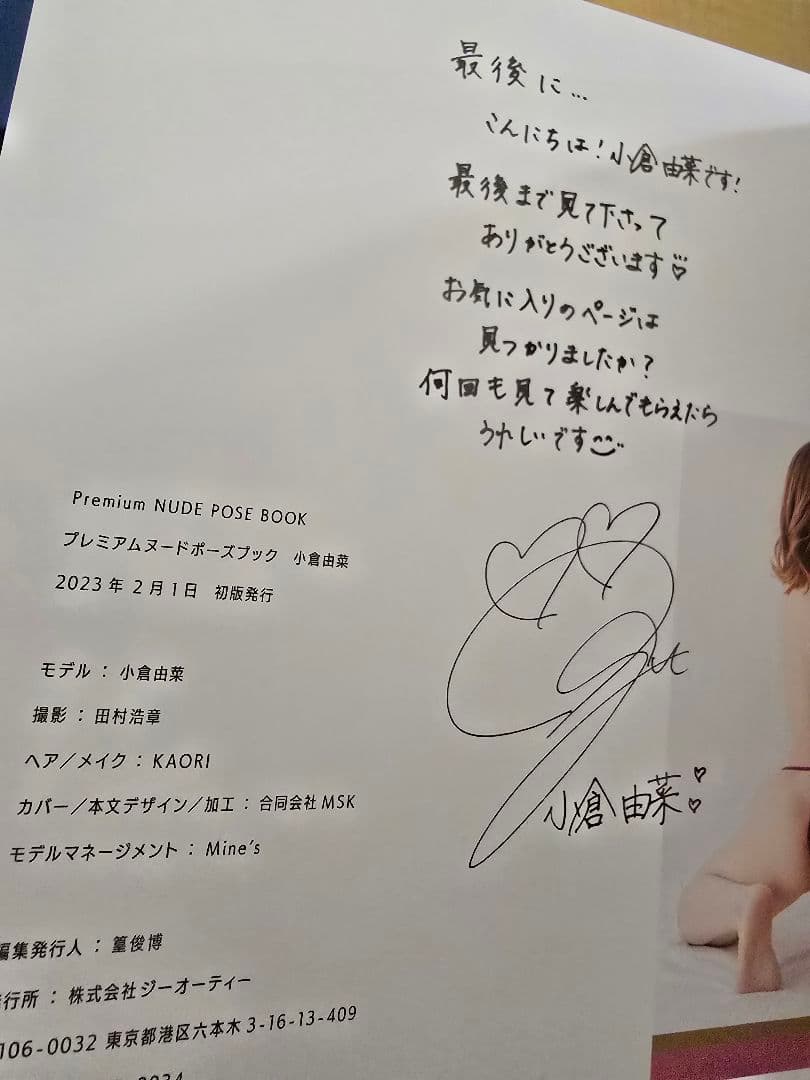 最後に...
こんにちは!小倉由菜です!
最後まで見て下さって
ありがとうございます♡
お気に入りのページは
見つかりましたか?
何回も見て楽しんでもらえたら
うれしいです
小倉由菜♡♡
Premium NUDE POSE BOOK
プレミアムヌードポーズブック 小倉由菜
2023年2月1日 初版発行
モデル:小倉由菜
撮影:田村浩章
ヘア/メイク:KAORI
カバー/本文デザイン/加工:合同会社MSK
モデルマネージメント:Mine's
編集発行人:篁俊博
行所:株式会社ジーオーティー
106-0032 東京都港区六本木3-16-13-409